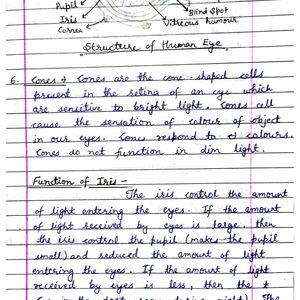 Pupil
Iris
Cornea
Blind Spot
Vitreous humour
Structure of Human Eye
6. Cones → Cones are the cone-shaped cells
present in the retina of an eye which
are sensitive to bright light. Cones cell
cause the sensation of colour of object
in our eyes. Cones respond to colours.
Cones do not function in dim light.
Function of Iris –
The iris control the amount
of light entering the eyes. If the amount
of light received by eyes is large, then
the iris control the pupil (makes the pupil
small) and reduced the amount of light
entering the eyes. If the amount of light
received by eyes is less, then the